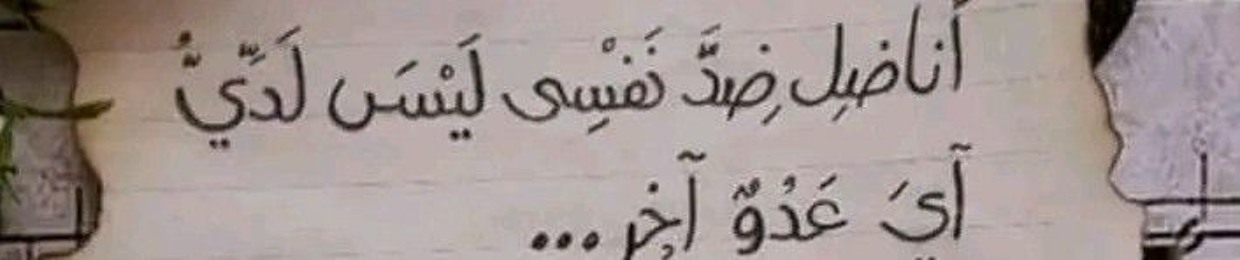 أناضِل ضِدَّ نَفْسِى لَيْسَ لَدَيَّ
آيَ عَدُوٌ آخِر ...